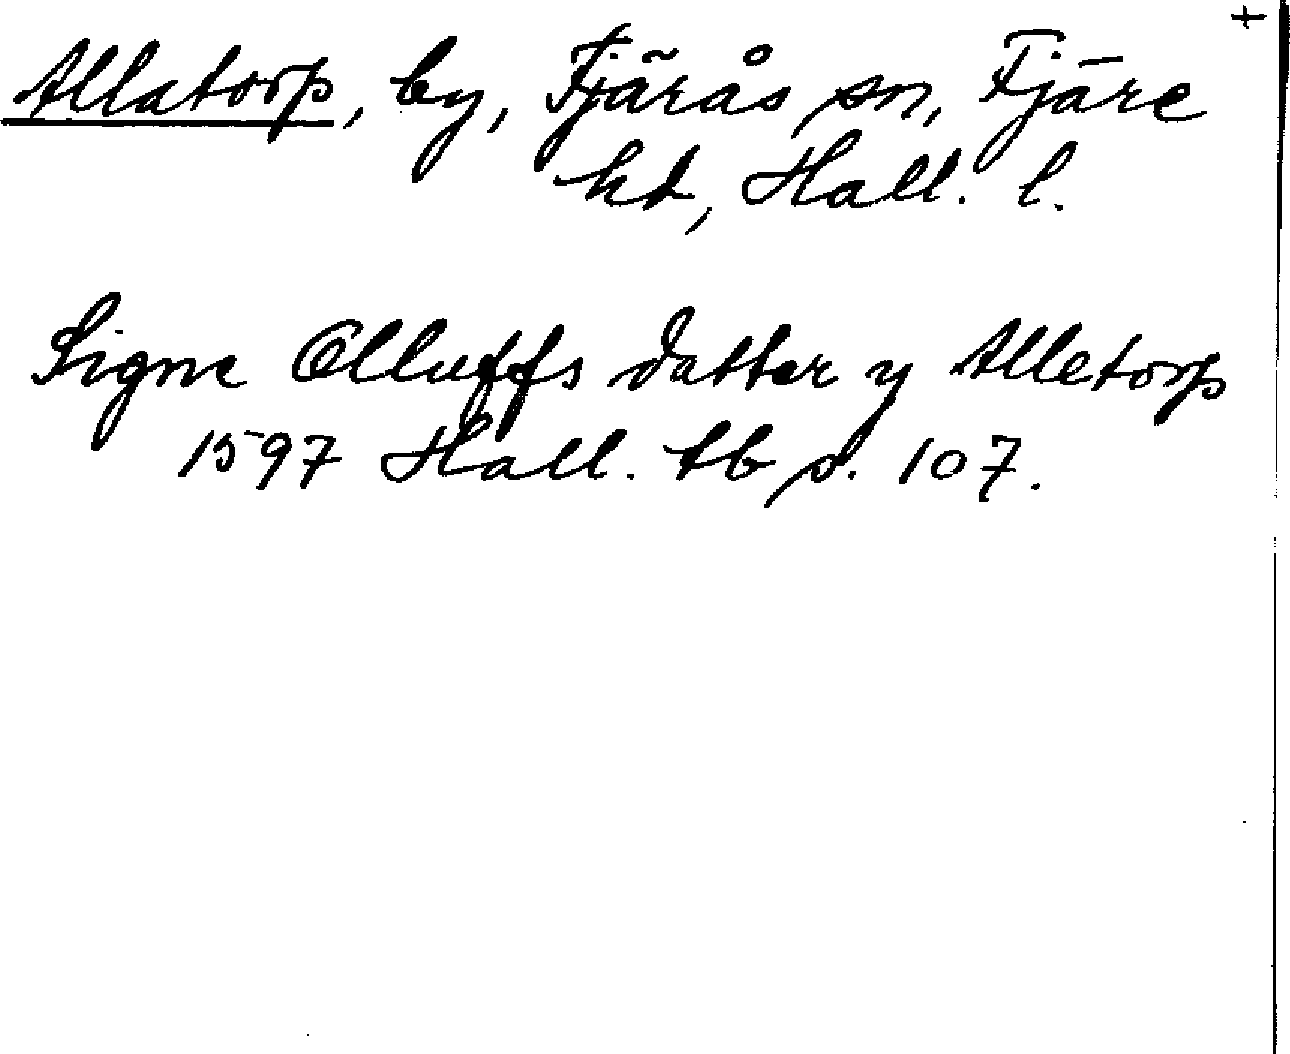 +
Allatorp, by, Fjärås sn, Fjäre
hd, Hall. l.
Signe Olluffs datter y Alletorp
1597 Hall. tb s. 107.